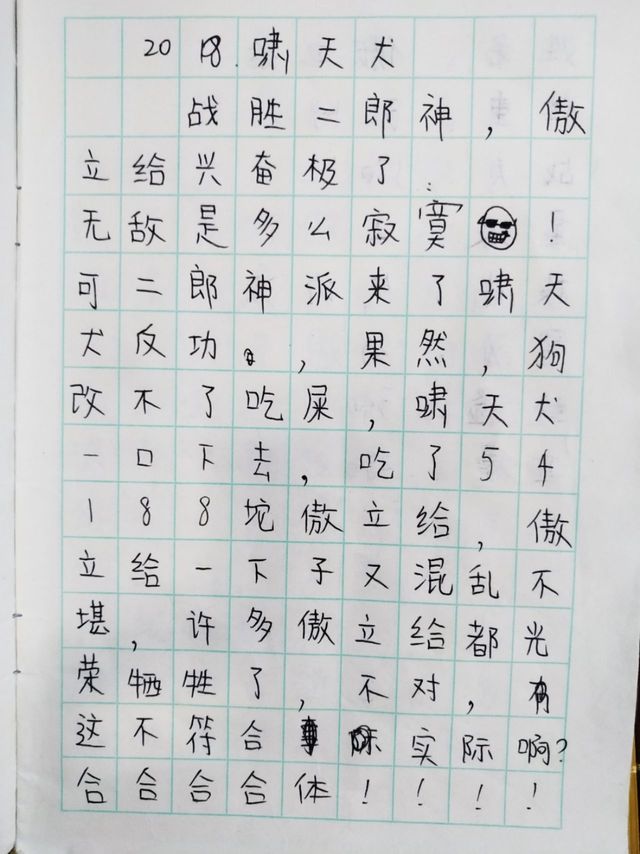 2018.啸天犬
战胜二郎神，傲
立给兴奋极了：
无敌是多么寂寞！
可二郎神派来了啸天
犬反功。，果然，狗
改不了吃屎，啸天犬
一口下去，吃了54
188坨傲立给，傲
立给一下子又混乱不
堪，许多傲立给都光
荣牺牲了，不对，
这不符合实际啊？
合合合合体！！！！